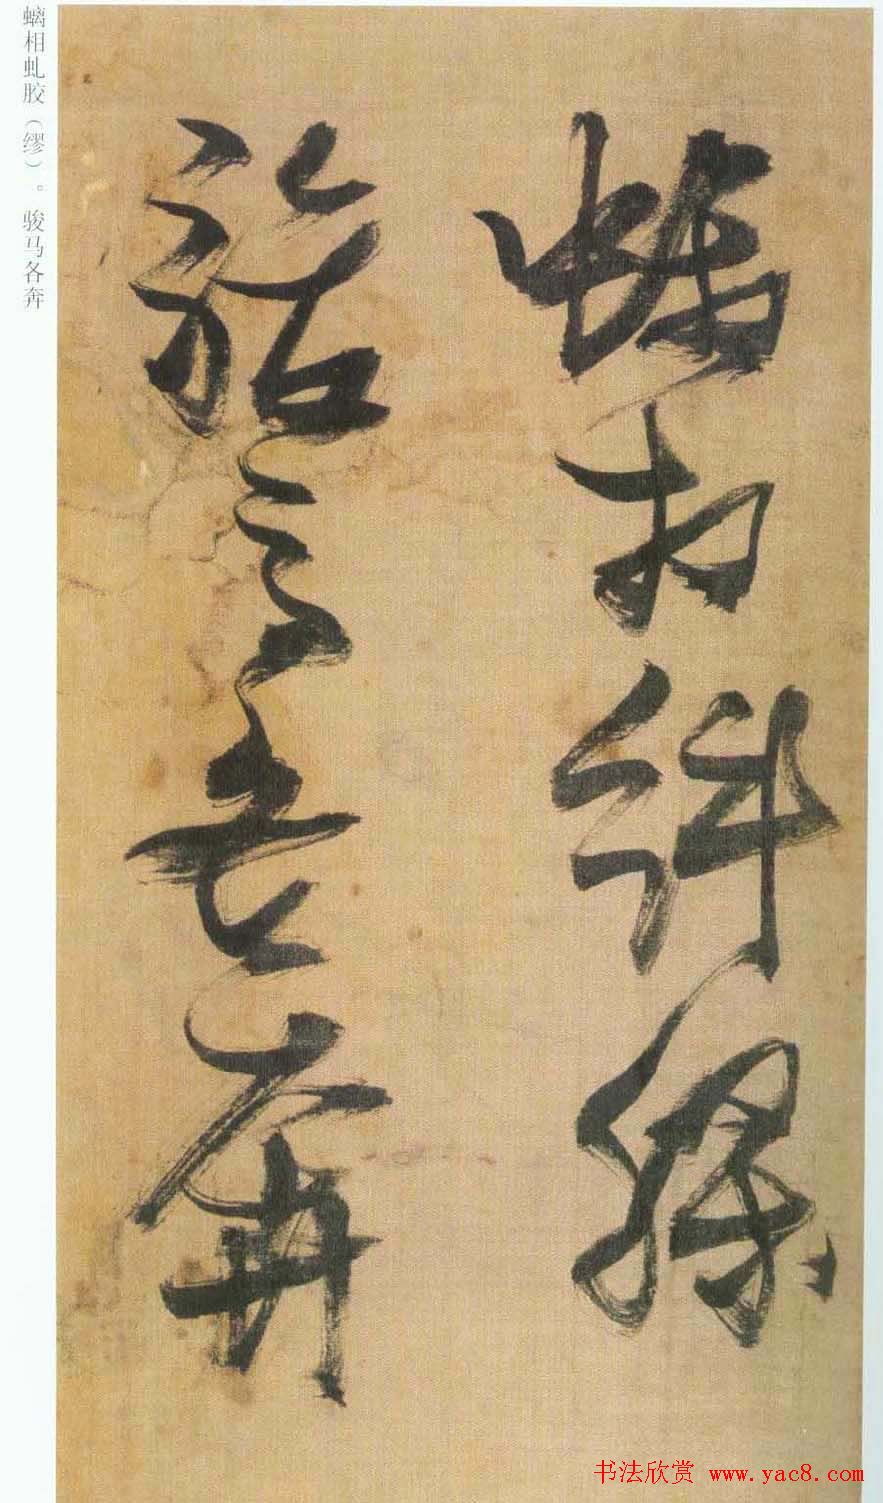 螭相虬胶（缪）。骏马各奔
螭相糾繆
各奔
书法欣赏 www.yac8.com